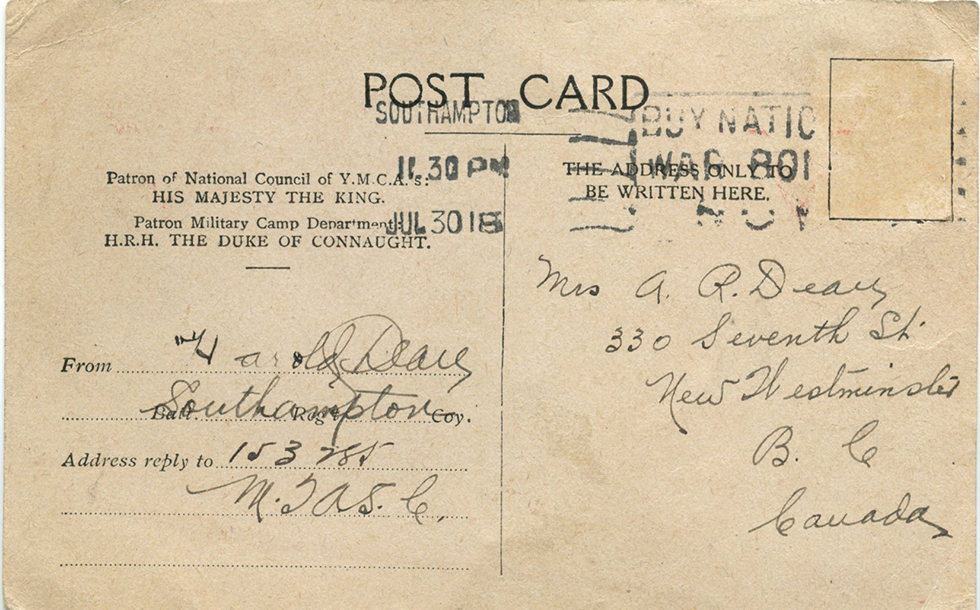 POST CARD
SOUTHAMPTON
11.30 PM
JUL 30 18
BUY NATIO
WAR BO
NOW
Patron of National Council of Y.M.C.A.'s:
HIS MAJESTY THE KING.
Patron Military Camp Department:
H.R.H. THE DUKE OF CONNAUGHT.
From Harold Deary
Southampton
Batt. Regt. Coy.
Address reply to 153285
M.T. A.S.C.
THE ADDRESS ONLY TO
BE WRITTEN HERE.
Mrs A. R. Deary
330 Seventh St.
New Westminster
B. C
Canada